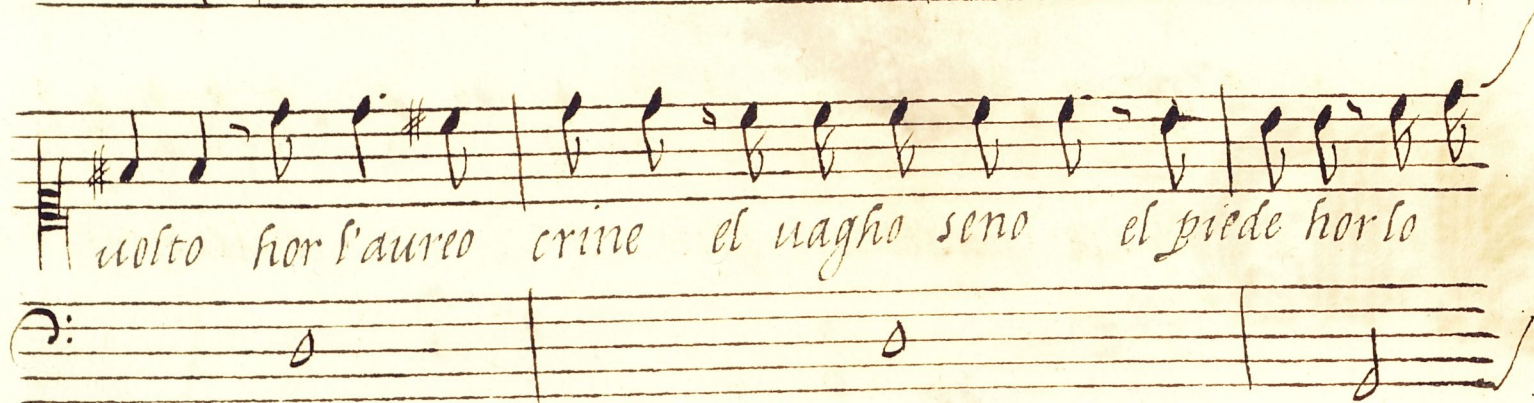 uolto hor l'aureo crine el uagho seno el piede hor lo